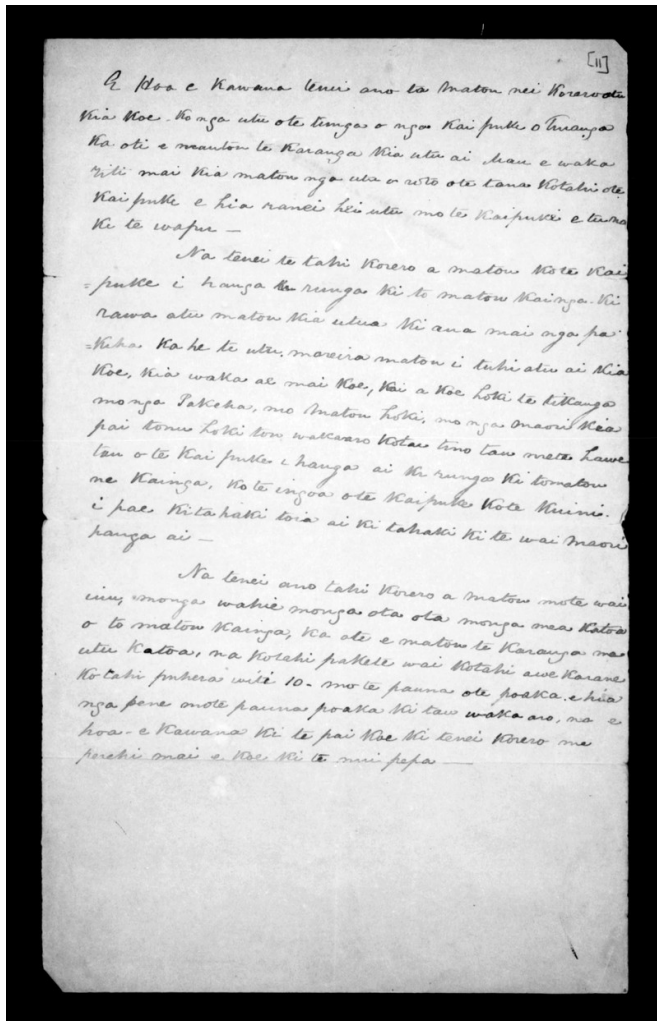 [11]
E Hoa e Kawana tenei ano ta Matou nei Korero atu
Kia Koe. Ko nga utu ote tunga o nga Kai puke o Tuanga
Ka oti e matou te Karanga Kia utu ai Mau e waka
riti mai Kia matou nga utu o roto ote tana Kotahi ote
Kai puke e hia ranei hei utu mo te Kaipuke e tu na
Ki te wapu —
Na tenei te tahi Korero a matou Kote Kai
=puke i hanga ki runga Ki to matou Kainga. Ki
rawa atu matou Kia utua Ki ana mai nga pa
=Keha Ka he te utu, mareira matou i tuhi atu ai Kia
Koe, Kia waka ae mai Koe, Kai a Koe hoki te tikanga
mo nga Pakeha, mo Matou hoki, mo nga Maori Kia
pai tonu hoki tou wakaaro Kotau tino tau mete hawe
tau o te Kai puke i hanga ai Ki runga Ki tomatou
ne Kainga, Ko te ingoa ote Kaipuke Kote Kuini.
i pae Ki tahaki toia ai Ki tahaki Ki te wai Maori
hanga ai —
Na tenei ano tahi Korero a matou mote wai
inu, monga wahie monga ota ota monga mea Katoa
o to matou Kainga, Ka ote e matou te Karanga me
utu Katoa, na Kotahi pakete wai Kotahi awe Karane
Kotahi puhera witi 10 - mo te pauna ote poaka. e hia
nga pene mote pauna poaka Ki tau waka aro, na e
hoa - e Kawana Ki te pai Koe Ki tenei Korero me
perehi mai e Koe Ki te nui pepa —